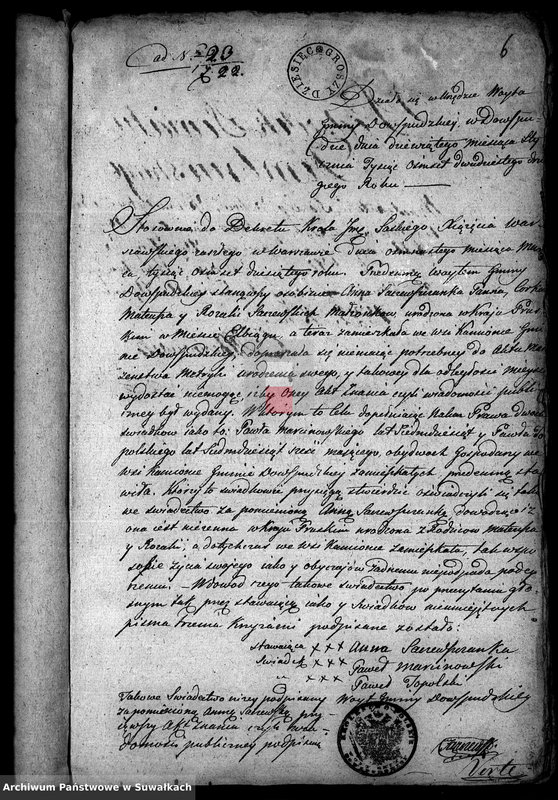 ad N 20
1822.
6
DZIESIEC GROSZY
Działo się w Urzędzie Woyta
Gminy Dowspudzkiey w Dowspu-
dzie dnia dziewiątego miesiąca Sty
cznia Tysiąc Osmset dwudziestego dru
giego Roku
Stosownie do Dekretu Krola Jmc Saskiego Xiążęcia War-
szawskiego w Warszawie dnia osmnastego miesiąca
tysiąc osmset dziesiątego roku. Przedemną Woytem Gminy
Dowspudzkiey stanąwszy osobiście Anna Panna, Corka
y Rozalii Małżonkow, urodzona w Kraju Prus
kim w Mieście Elblągu, a teraz zamieszkała we wsi Kamionce Gmi
nie Dowspudzkiey, dopraszała się niemaiąc potrzebney do Aktu Mał
żenstwa Metryki urodzenia swego, y takowey dla odległości mieysca
wydostać niemogąc iżby Onej Akt Znania czyli wiadomości publi
czney był wydany. W ktorym to celu dopełniaiąc Nakaz Prawa dwoch
swiadkow iako to: Pawła Marcinowskiego lat Siedmdziesiąt y Pawła To
polskiego lat Siedmdziesiąt sześć maiącego, obydwoch Gospodarzy we
wsi Kamionce Gminie Dowspudzkiey zamieszkałych przedemną sta
wiła. Ktorzy to swiadkowie przysięgą stwierdzić oświadczyli się
we swiadectwo za pomienioną Anną dowodząc iż
ona iest w kraju Pruskim urodzona z Rodzicow
y Rozalii, a dotychczas we wsi Kamionce zamieszkała, tak wspo
sobie życia swojego iako y obyczajow żadnemu niepodpada podey
rzeniu. Wdowod czego takowe swiadectwo po przeczytaniu gło
snym tak przez stawaiącą iako y Swiadkow nieumieiętnych
pisma trzema Krzyżami podpisane zostało:
stawaiąca x x x Anna
Swiadek x x x Paweł Marcinowski
" x x x Paweł Topolski
Takowe Swiadectwo niżey podpisany Woyt Gminy Dowspudzkiey
za pomienioną Anną przy
Akt Znania czyli wia
domości publiczney podpisuię
Verte
Archiwum Państwowe w Suwałkach